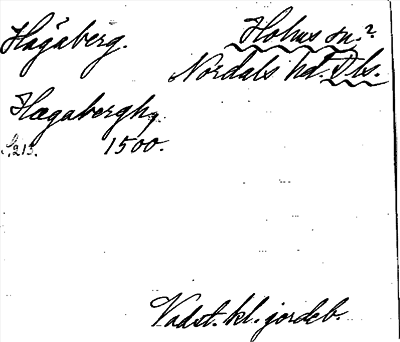 Hagaberg. Holms sn.?
Nordals hd. Dls.
Hagabergh
S. 213. 1500.
Vadst. kl. jordeb.